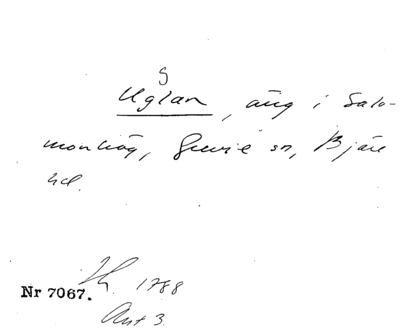 S
Uglan, äng i Salo-
monhög, Grevie sn, Bjäre
hd.
Nr 7067.
1788
Ant 3.